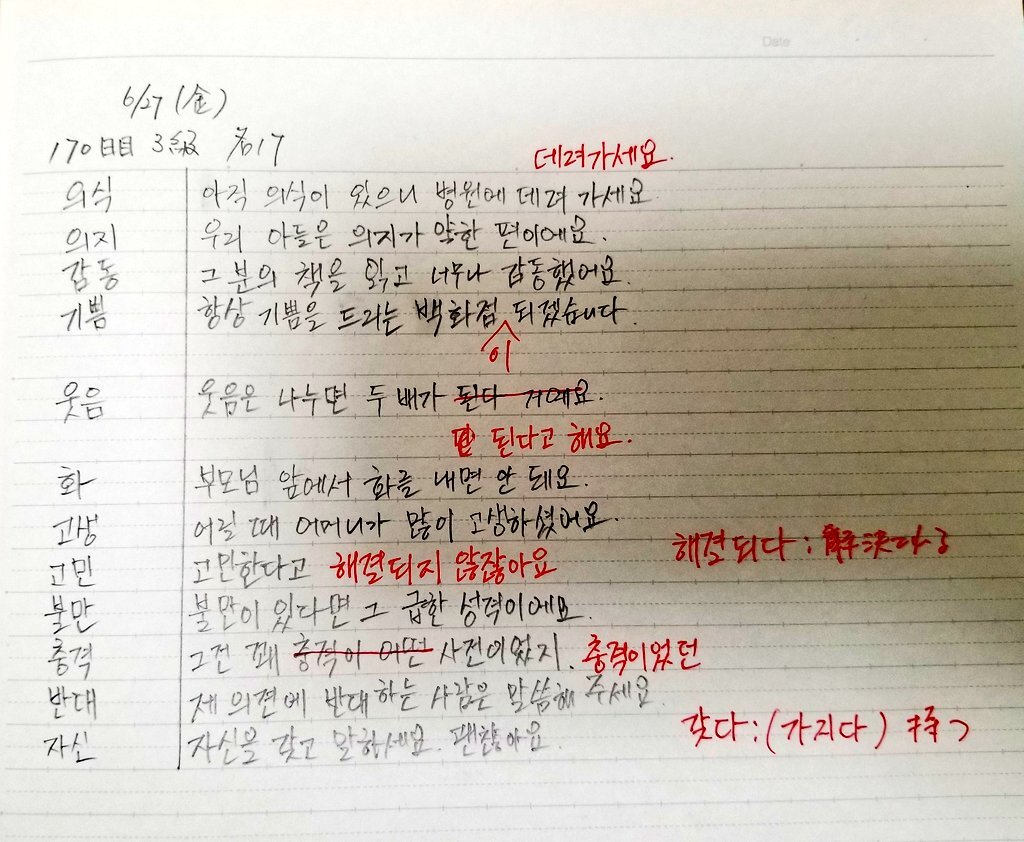 Date
6/27 (金)
170日目 3級 名17
데려가세요.
의식 아직 의식이 있으니 병원에 데려 가세요
의지 우리 아들은 의지가 약한 편이에요.
감동 그 분의 책을 읽고 너무나 감동했어요.
기쁨 항상 기쁨을 드리는 백화점 되겠습니다.
이
웃음 웃음은 나누면 두 배가 된다 거예요.
된다고 해요.
화 부모님 앞에서 화를 내면 안 돼요.
고생 어릴 때 어머니가 많이 고생하셨어요.
고민 고민한다고 해결되지 않잖아요 해결되다:解決する
불만 불만이 있다면 그 급한 성격이에요.
충격 그건 꽤 충격이 어떤 사전이었지. 충격이었던
반대 제 의견에 반대하는 사람은 말씀해 주세요.
자신 자신을 갖고 말하세요. 괜찮아요. 갖다:(가지다) 持つ